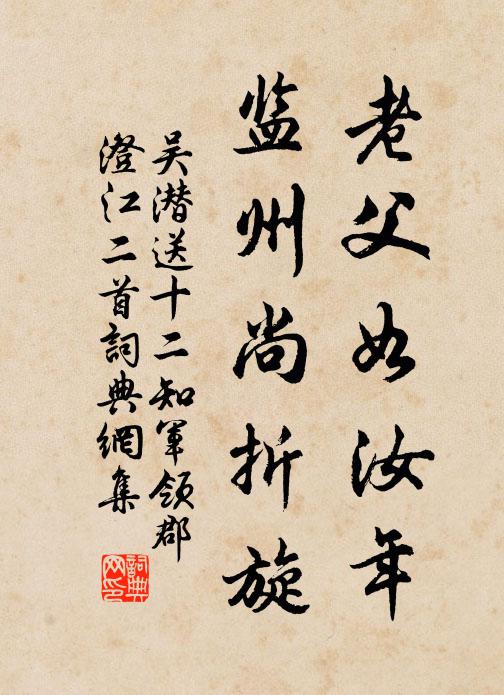 老父如汝年
监州尚折旋
吴潜送十二知军领郡
澄江二首詞典網集
詞典网印